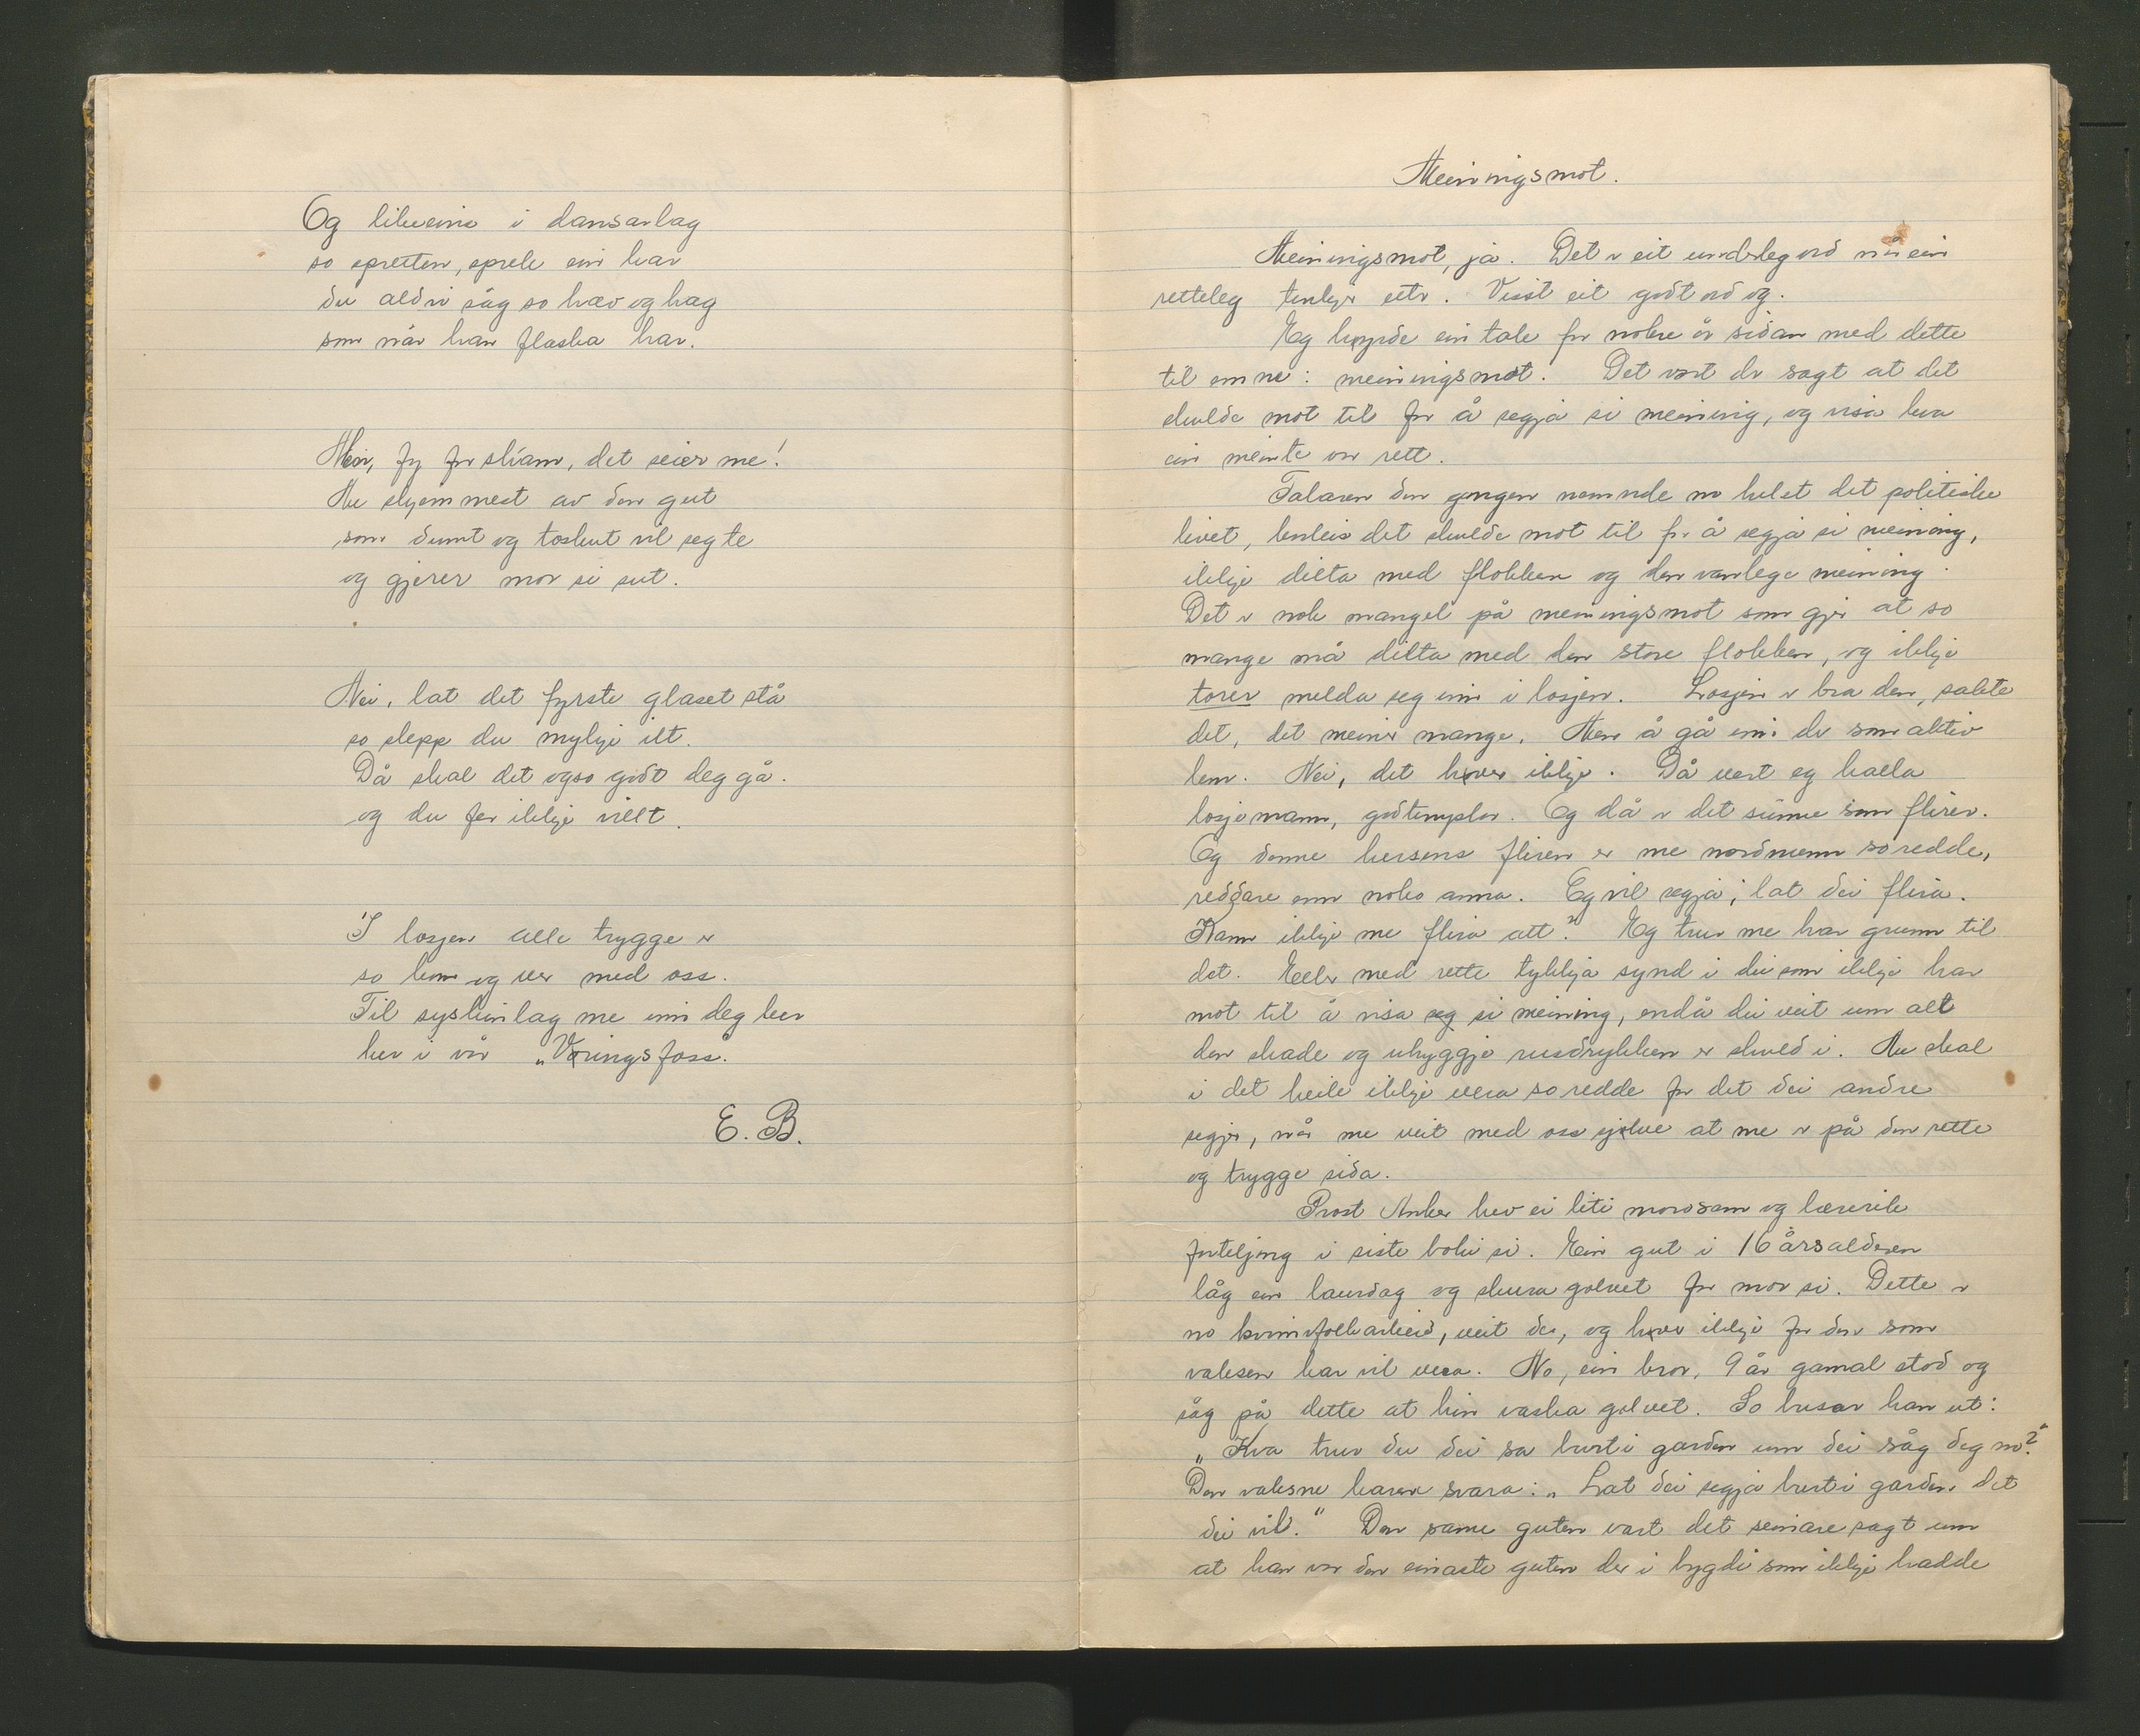 Og likeeins i dansarlag
so spretten, sprek ein kar
du aldri såg so hæv og hag
som når han flaska har.
Men, fy for skam, det seier me!
Me skjemmest av den gut
som dumt og toskut vil seg te
og gjerer mor si sut.
Nei, lat det fyrste glaset stå
so slepp du mykje ilt.
Då skal det ogso godt deg gå.
og du fer ikkje villt.
I losjen alle trygge er
so kom og ver med oss.
Til syskinlag me inn deg ber
her i vår „Vøringsfoss.
E. B.
Meiningsmot.
Meiningsmot, ja. Det er eit underleg ord når ein
retteleg tenkjer etter. Visst eit godt ord og.
Eg høyrde ein tale for nokre år sidan med dette
til emne: meiningsmot. Det vart der sagt at det
skulde mot til for å segja si meining, og visa kva
ein meinte var rett.
Talaren den gongen nemnde no helst det politiske
livet, korleis det skulde mot til for å segja si meining,
ikkje dilta med flokken og den vanlege meining.
Det er nok mangel på meiningsmot som gjer at so
mange må dilta med den store flokken, og ikkje
torer melda seg inn i losjen. Losjen er bra den, sakte
det, det meiner mange. Men å gå inn der som aktiv
lem. Nei, det høver ikkje. Då vert eg kalla
losjemann, godtemplar. Og då er det sume som flirer.
Og denne hersens fliren er me nordmenn so redde,
reddare enn noko anna. Eg vil segja; lat dei flira.
Kann ikkje me flira att? Eg trur me har grunn til
det. Eller med rette tykkja synd i dei som ikkje har
mot til å visa seg si meining, endå dei veit um alt
den skade og uhyggje rusdrykken er skuld i. Me skal
i det heile ikkje vera so redde for det dei andre
segjer, når me veit med oss sjølve at me er på den rette
og trygge sida.
Prost Anker hev ei liti morosam og lærerik
forteljing i siste boki si. Ein gut i 16 årsalderen
låg ein laurdag og skura golvet for mor si. Dette er
no kvinnfolkarbeid, veit de, og høver ikkje for den som
vaksen kar vil vera. No, ein bror, 9 år gamal stod og
såg på dette at hin vaska golvet. So busar han ut:
„Kva trur du dei sa burti garden um dei såg deg no?"
Den vaksne karen svara: „Lat dei segja burti garden det
dei vil." Den same guten vart det seinare sagt um
at han var den einaste guten der i bygdi som ikkje hadde